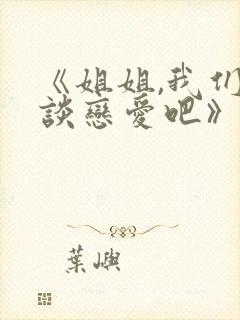 《姐姐,我们
談戀愛吧》
葉嶼